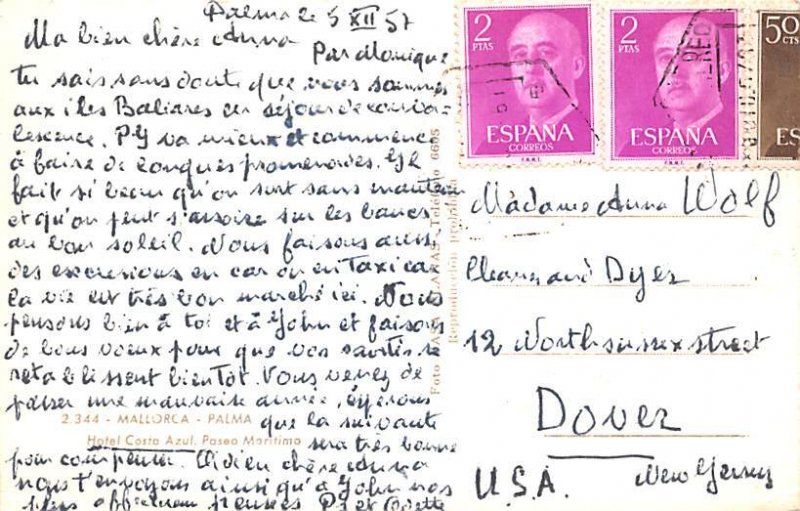 Palma le 5 XII 57
Ma bien chère Anna
Par Monique
tu sais sans doute que nous sommes
aux iles Baliares en séjour de conva-
lescence. PY va mieux et commence
à faire de longues promenades. Il
fait si beau qu'on sort sans manteau
et qu'on peut s'assoire sur les bancs
au bon soleil. Nous faisons aussi
des excursions en car ou en Taxi car
la vie est très bon marché ici. Nous
pensons bien à toi et à John et faisons
de bons voeux pour que vos santés se
retablissent bientôt. Vous venez de
passer une mauvaise année,
que la suivante
sera très bonne
pour compenser. Adieu chère Anna
nous t'envoyons ainsi qu'à John nos
plus affectueuses pensées PY et Odette
2.344 - MALLORCA - PALMA
Hotel Costa Azul. Paseo Maritimo
Foto CASA PLANAS - Teléfono 6605
Reproducción prohibida
2
PTAS
ESPAÑA
CORREOS
F.N.M.T.
2
PTAS
ESPAÑA
CORREOS
F.N.M.T.
50
CTS
ES
Madame Anna Wolf
Dyer
12 North sussex street
Dover
New Jersey
U.S.A.